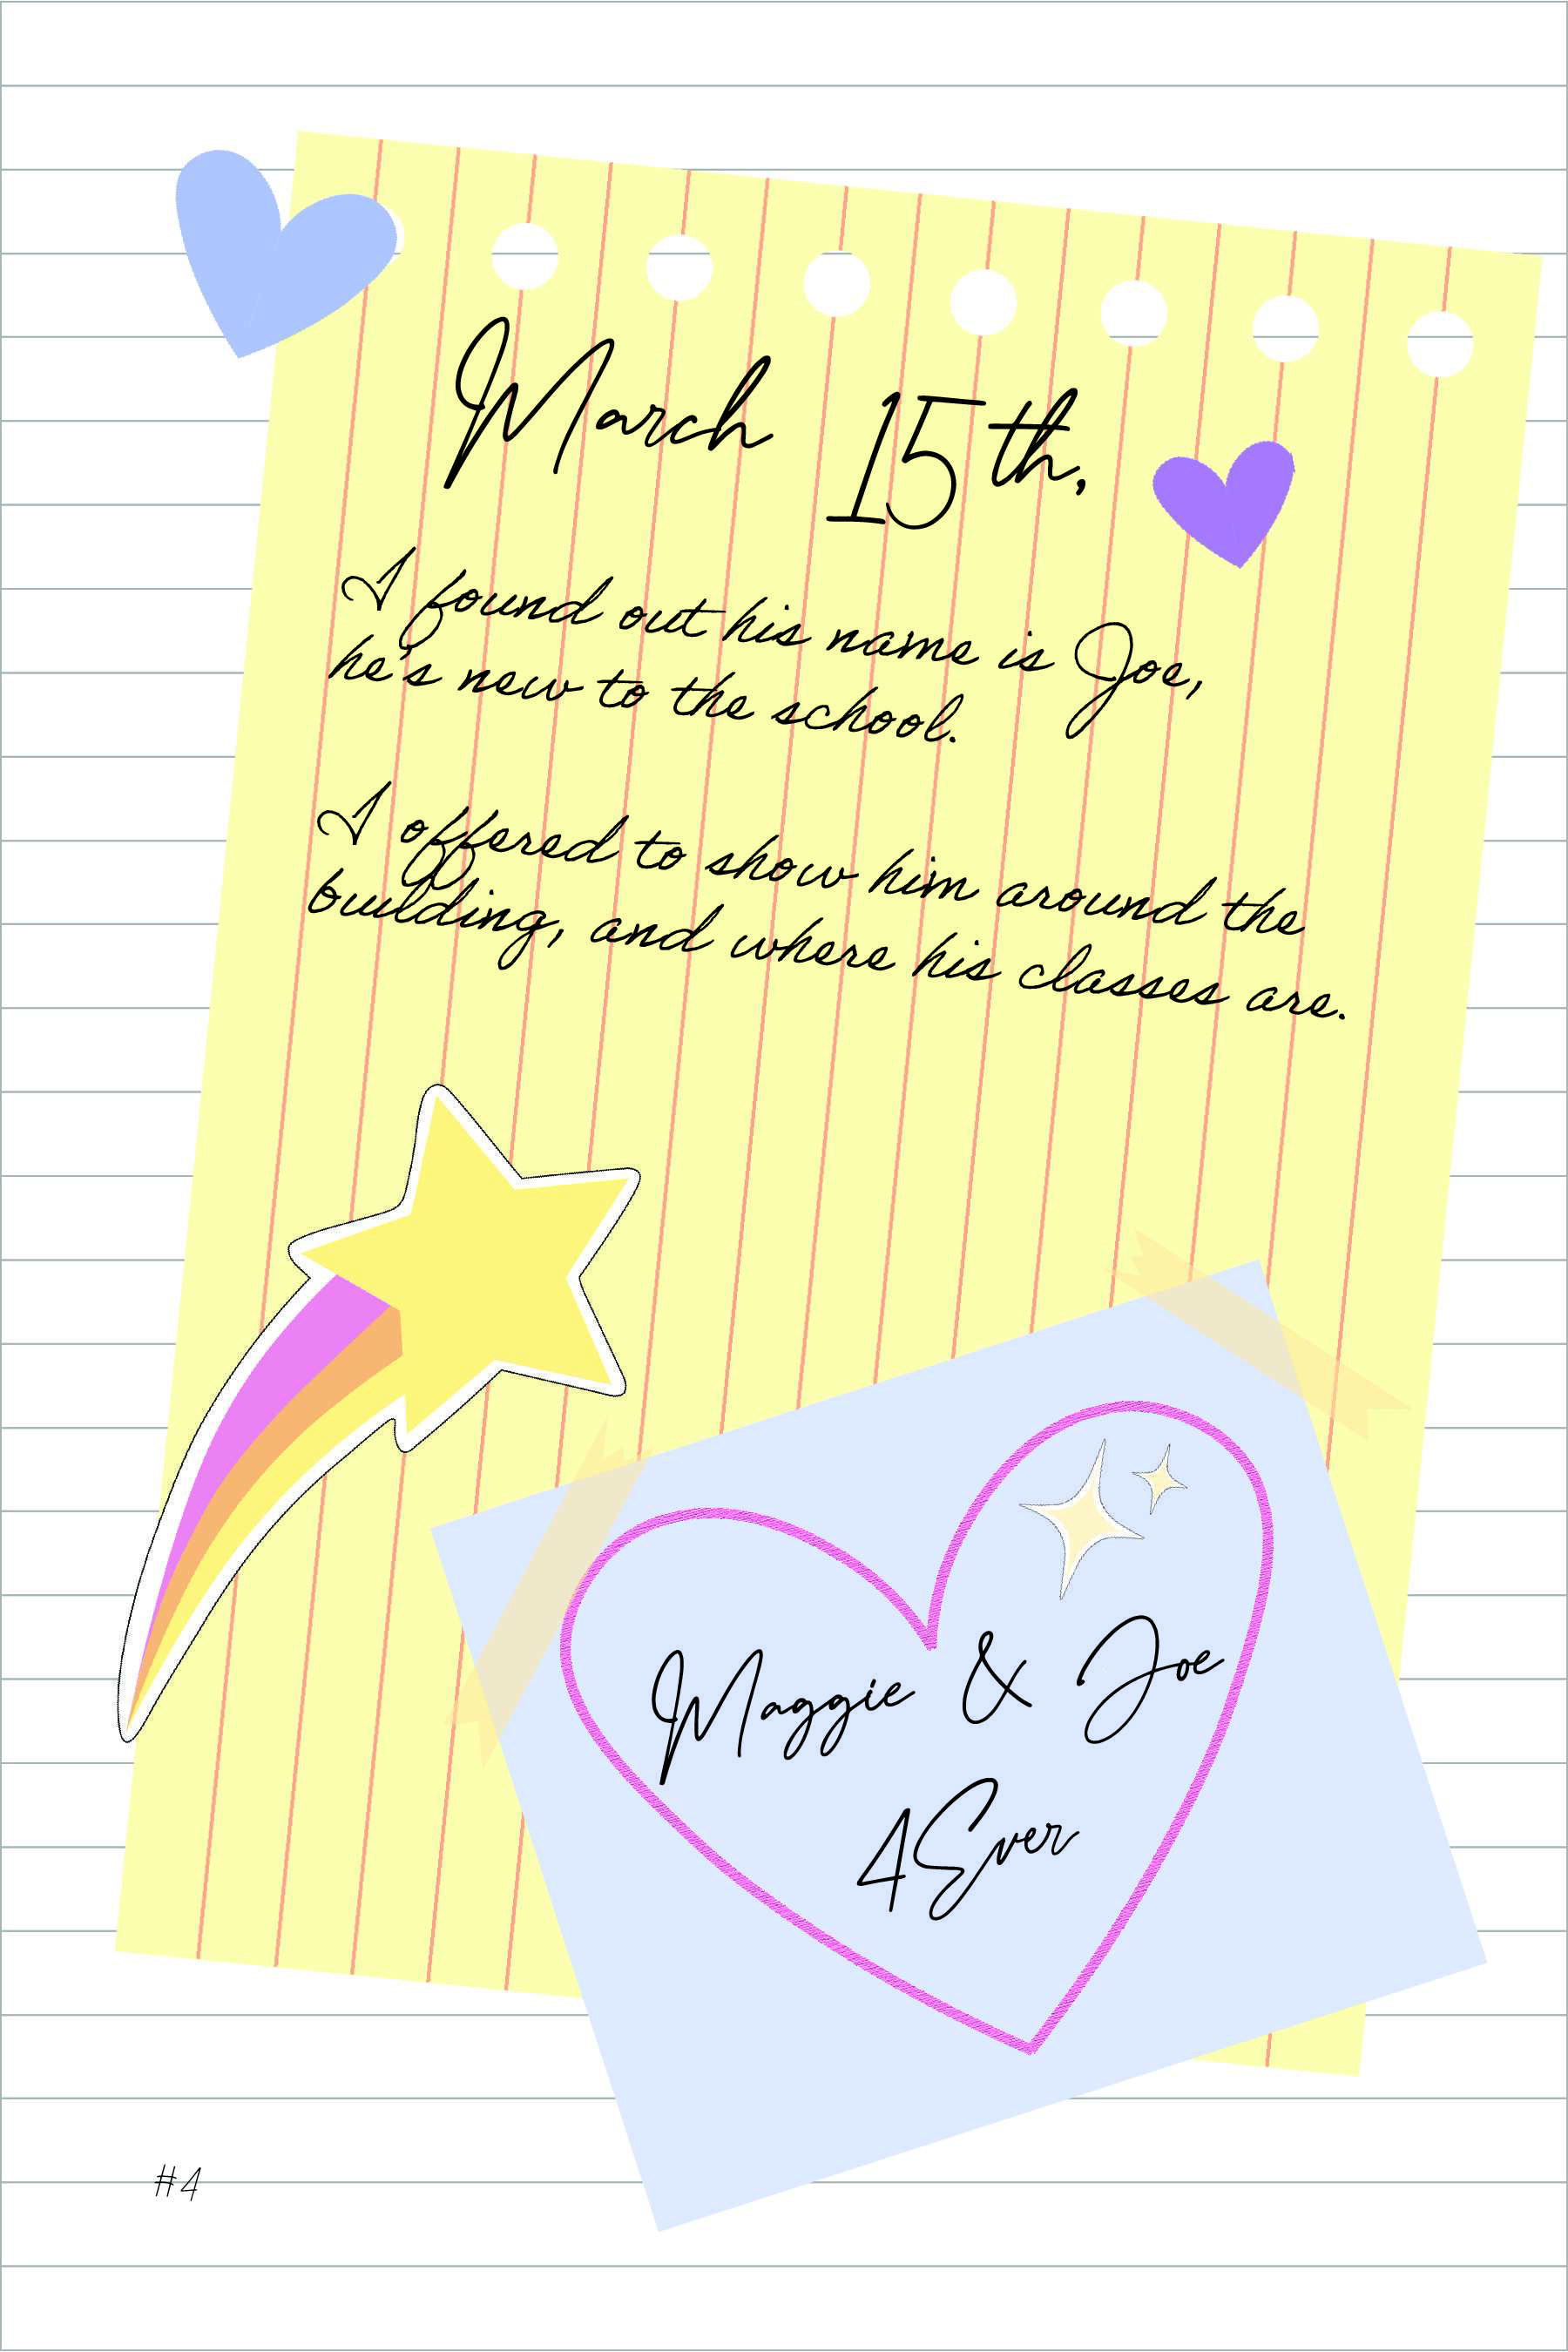 March 15th,
I found out his name is Joe,
he's new to the school.
I offered to show him around the
building, and where his classes are.
Maggie & Joe
4Ever
#4